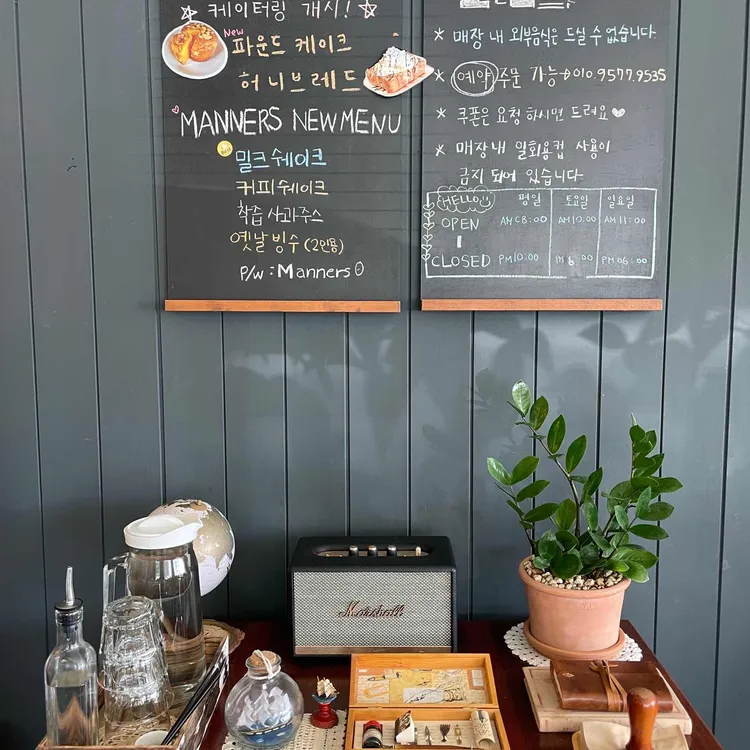 ☆ 케이터링 개시! ☆
New
파운드 케이크
허니브레드
MANNERS NEW MENU
밀크쉐이크
커피쉐이크
착즙 사과주스
옛날 빙수 (2인용)
P/W : Manners0
* 매장 내 외부음식은 드실 수 없습니다
* 예약 주문 가능 → 010.9577.9535
* 쿠폰은 요청하시면 드려요 ♥
* 매장 내 일회용컵 사용이
금지 되어 있습니다
HELLO!! 평일 토요일 일요일
OPEN AM 08:00 AM 10:00 AM 11:00
CLOSED PM 10:00 PM 06:00
Marshall